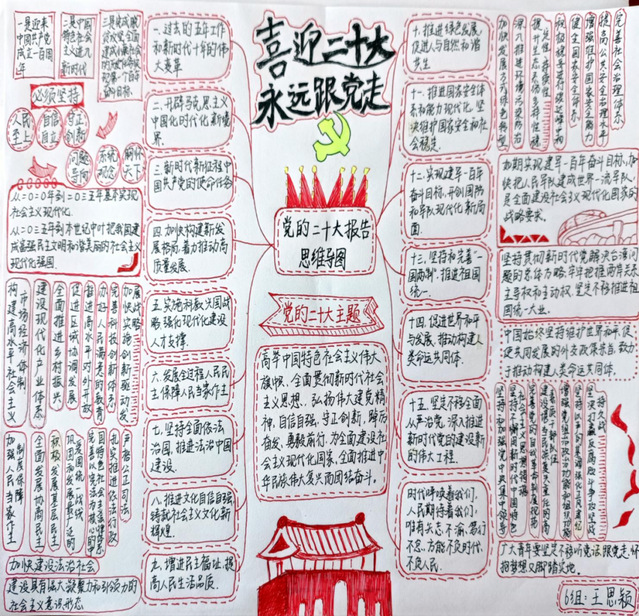 喜迎二十大
永远跟党走
党的二十大报告
思维导图
党的二十大主题
高举中国特色社会主义伟大
旗帜，全面贯彻新时代社会
主义思想，弘扬伟大建党精
神，自信自强、守正创新，踔厉
奋发、勇毅前行，为全面建设社
会主义现代化国家、全面推进中
华民族伟大复兴而团结奋斗。
一是迎来
中国共产党
成立一百周
年
二是中国
特色社会
主义进入
新时代
必须坚持
人民
至上
自信
自立
守正
创新
问题
导向
系统
观念
胸怀
天下
从二〇二〇年到二〇三五年基本实现
社会主义现代化
从二〇三五年到本世纪中叶把我国建
成富强民主文明和谐美丽的社会主义
现代化强国
一、过去的五年工作
和新时代十年的伟
大变革
二、开辟马克思主义
中国化时代化新境
界
三、新时代新征程中
国共产党的使命任务
四、加快构建新发
展格局，着力推动高
质量发展
五、实施科教兴国战
略，强化现代化建设
人才支撑
六、发展全过程人民民
主，保障人民当家作主
七、坚持全面依法
治国，推进法治中国
建设
八、推进文化自信自强
铸就社会主义文化新
辉煌
九、增进民生福祉，提
高人民生活品质
构建高水平社会主义
市场经济体制
建设现代化产业体系
全面推进乡村振兴
促进区域协调发展
推进高水平对外开放
办好人民满意的教育
完善科技创新体系
加强人民当家作主
制度保障
全面发展协商民主
积极发展基层民主
扎实推进依法行政
严格公正司法
加快建设法治社会
建设具有强大凝聚力和引领力的
社会主义意识形态
十、推进绿色发展，
促进人与自然和谐
共生
十一、推进国家安全体
系和能力现代化，坚
决维护国家安全和社
会稳定
十二、实现建军一百年
奋斗目标，开创国防
和军队现代化新局
面
十三、坚持和完善“一
国两制”，推进祖国
统一
十四、促进世界和平
与发展，推动构建人
类命运共同体
十五、坚定不移全面
从严治党，深入推进
新时代党的建设新
的伟大工程
时代呼唤着我们，
人民期待着我们，
唯有矢志不渝、笃行
不怠，方能不负时代、
不负人民。
加快发展方式绿色转型
深入推进环境污染防治
健全国家安全体系
增强维护国家安全能力
提高公共安全治理水平
完善社会治理体系
如期实现建军一百年奋斗目标，加
快把人民军队建成世界一流军队，
是全面建设社会主义现代化国家的
战略要求。
坚持贯彻新时代党解决台湾问
题的总体方略，牢牢把握两岸关系
主导权和主动权，坚定不移推进祖
国统一大业。
中国始终坚持维护世界和平、促
进共同发展的外交政策宗旨，致力
于推动构建人类命运共同体。
广大青年要坚定不移听党话、跟党走，怀
抱梦想又脚踏实地。